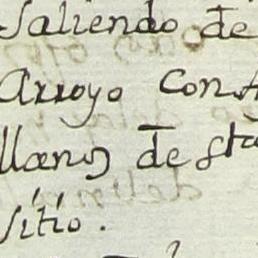 saliendo de
Arroyo Cons
llanos de sta
sitio.